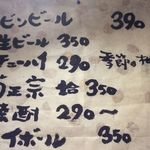 ビンビール 390
生ビール 350
チューハイ 290〜
季節の
正宗 冷 350
焼酎 290〜
イボール 350